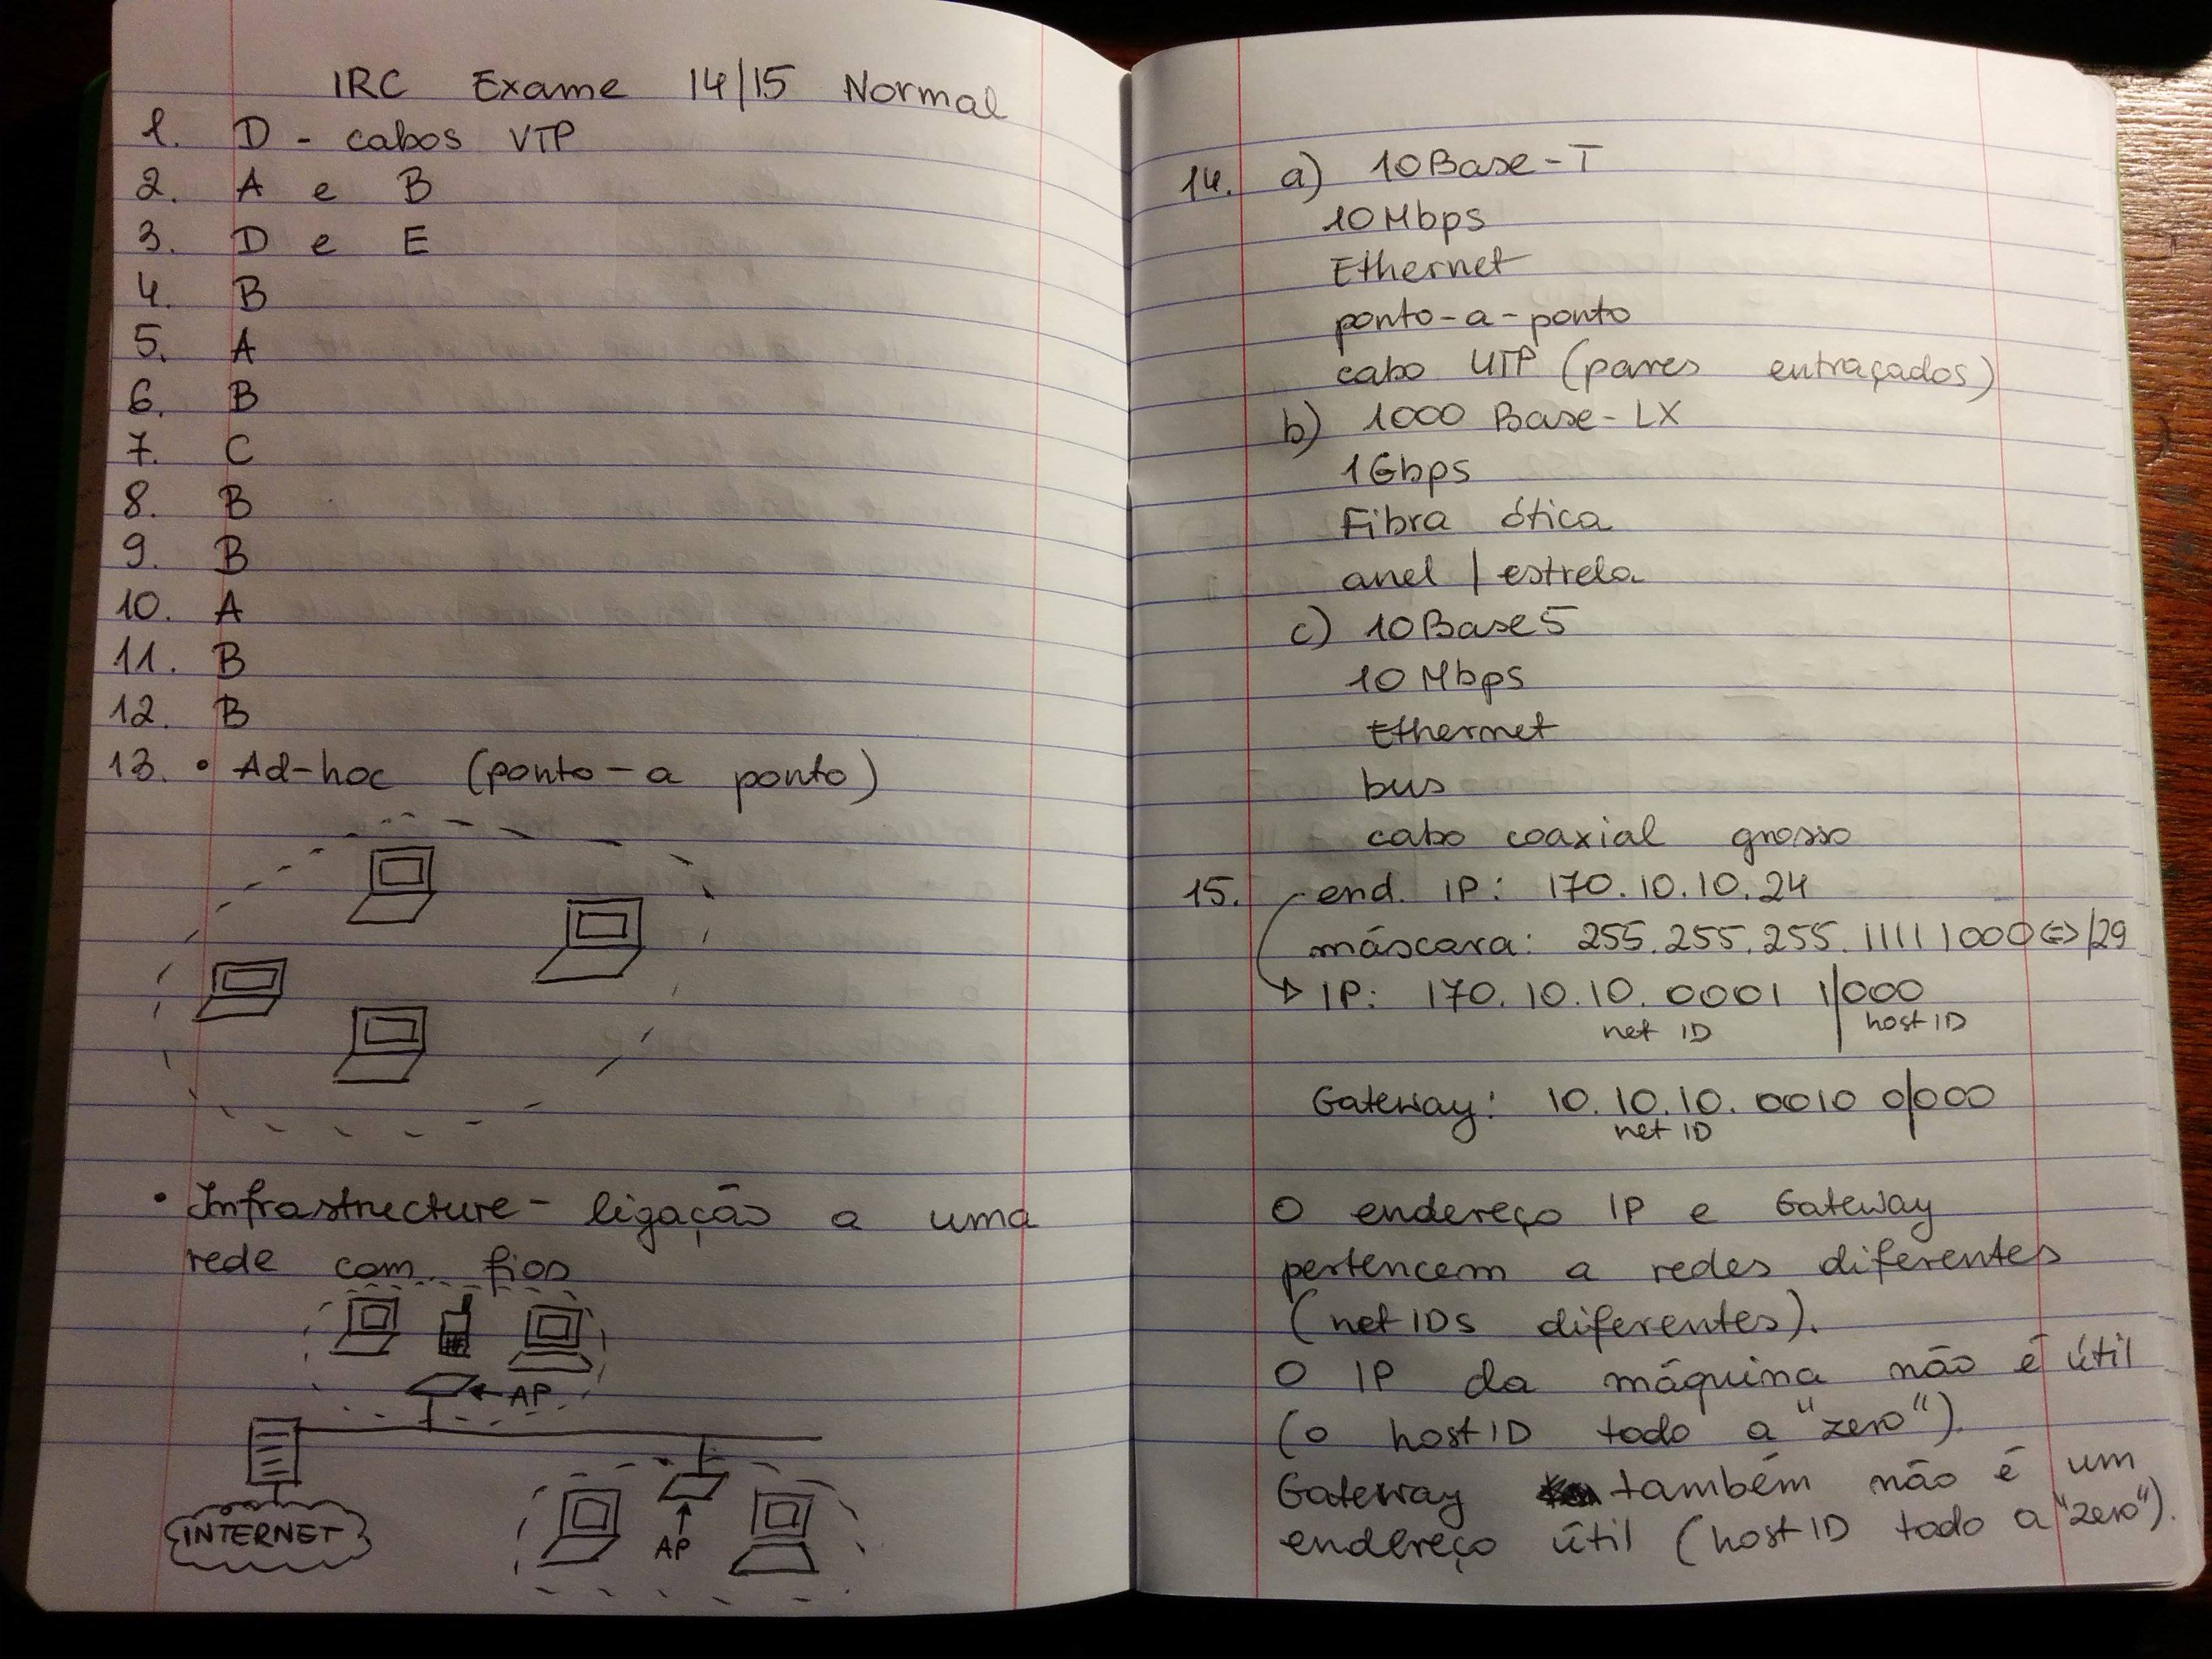 IRC Exame 14/15 Normal
1. D - cabos VTP
2. A e B
3. D e E
4. B
5. A
6. B
7. C
8. B
9. B
10. A
11. B
12. B
13. • Ad-hoc (ponto-a ponto)
• Infrastructure - ligação a uma
rede com fios
AP
INTERNET
AP
14. a) 10Base-T
10Mbps
Ethernet
ponto-a-ponto
cabo UTP (pares entraçados)
b) 1000 Base-LX
1Gbps
Fibra ótica
anel / estrela
c) 10Base5
10Mbps
Ethernet
bus
cabo coaxial grosso
15. end. IP: 170.10.10.24
máscara: 255.255.255.11111000<=>/29
IP: 170.10.10.0001 1|000
net ID host ID
Gateway: 10.10.10.0010 0|000
net ID
O endereço IP e Gateway
pertencem a redes diferentes
(net IDs diferentes).
O IP da máquina não é útil
(o host ID todo a "zero").
Gateway também não é um
endereço útil (host ID todo a "zero").